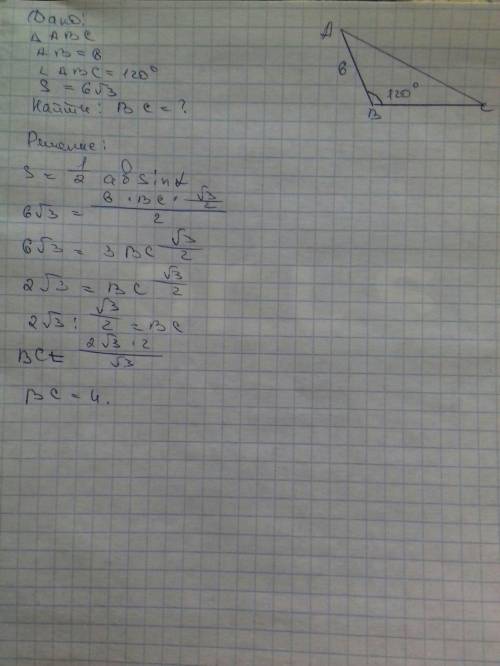 Дано:
Δ ABC
AB = 6
∠ ABC = 120°
S = 6√3
Найти: BC = ?
Решение:
S = 1/2 ab sin α
6√3 = (6 · BC · √3/2)/2
6√3 = 3 BC √3/2
2√3 = BC √3/2
2√3 : √3/2 = BC
BC = (2√3 · 2)/√3
BC = 4.
A
6
120°
B
C